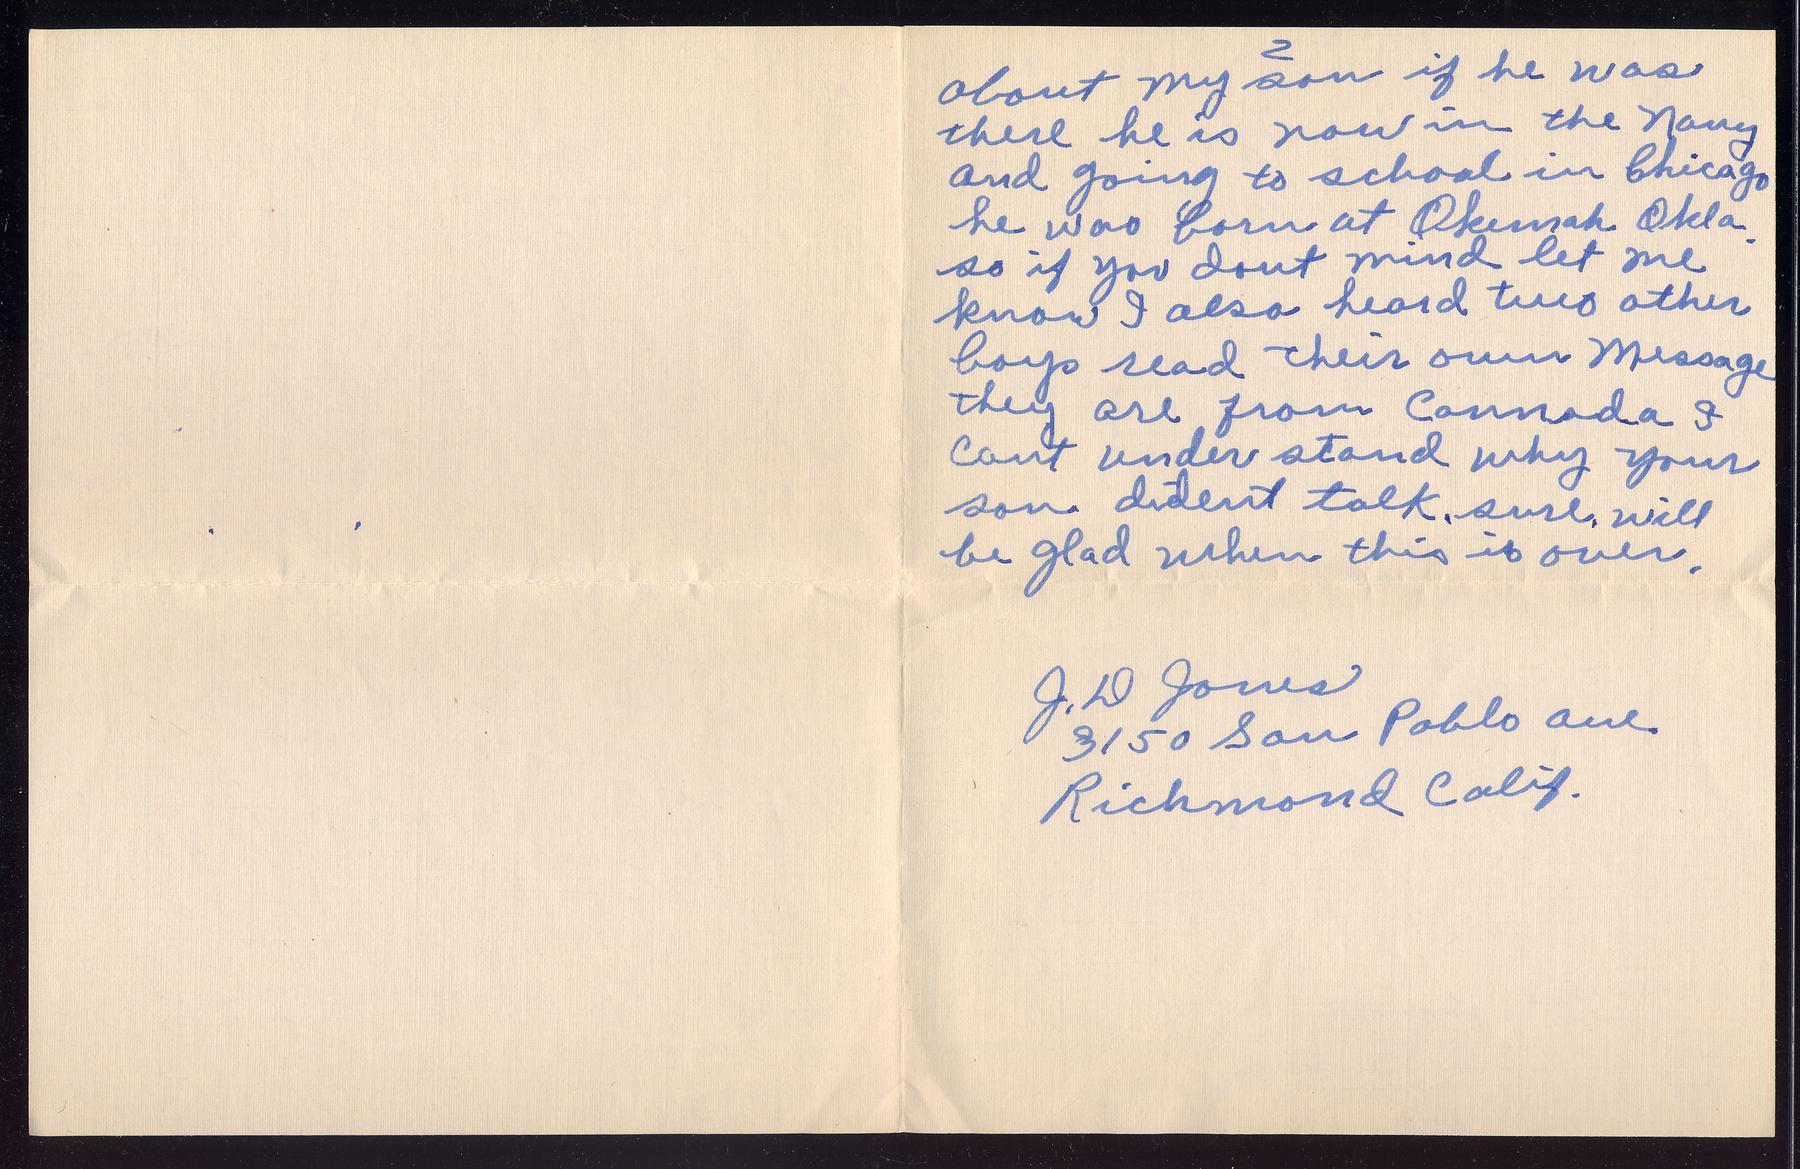 2
about my son if he was
there he is now in the Navy
and going to school in Chicago
he was born at Okemah Okla.
so if you dont mind let me
know I also heard two other
boys read their own Message
they are from Cannada I
cant under stand why your
son dident talk. sure will
be glad when this is over.
J. D Jones
3150 San Pablo ave.
Richmond Calif.